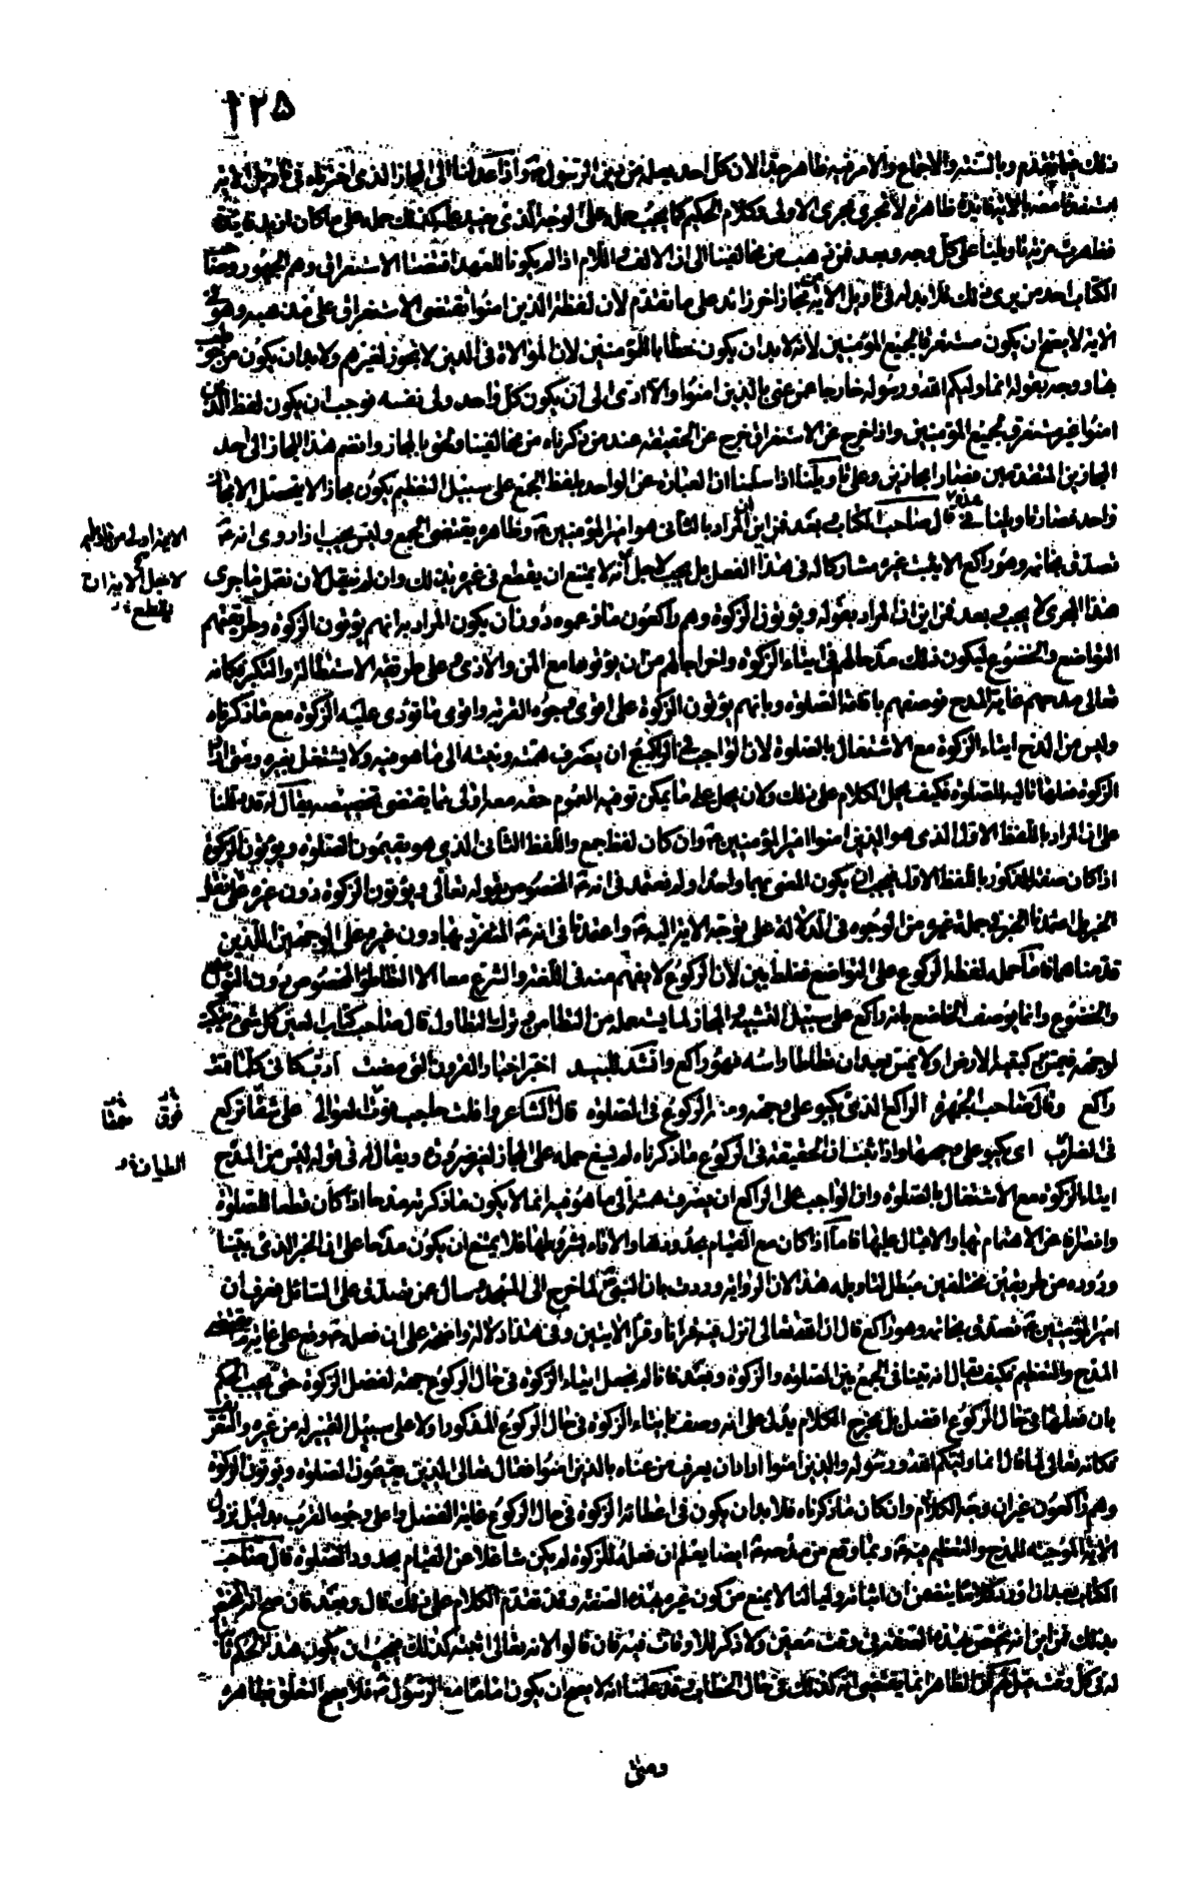 ١٢٥
ذلك فيما تقدم وبالسنة والاجماع والامر فيه ظاهر جدا لان كل احد يعلم من دين الرسول واذا عدلنا الى المجاز الذى اخترناه فى تاويل الاية
استفدنا معه الاية فائدة ظاهرة لا تجرى مجرى الاولى وكلام الحكيم كما يجب حمله على الوجه الذى يفيد عليه كذلك حمله على ما كان ازيد فائدة
فظهرت مزية تاويلنا على كل وجه وبعد فمن ذهب من مخالفينا الى ان الالف واللام اذا لم يكونا للعهد اقتضتا الاستغراق وهم الجمهور وصاحب
الكتاب احد من يرى ذلك فلا بد له فى تاويل الاية من مجاز اخر زائد على ما تقدم لان لفظة الذين امنوا تقتضى الاستغراق على مذهبه وهو فى
الاية لا يصح ان يكون مستغرقا لجميع المؤمنين لانه لا بد ان يكون خطابا للمؤمنين لان الموالاة فى الدين لا تجوز لغيرهم ولا بد ان يكون من خوطب
بها ووجه بقوله انما وليكم الله ورسوله خارجا عمن عنى بالذين امنوا والا ادى الى ان يكون كل واحد ولى نفسه فوجب ان يكون لفظ الذين
امنوا غير مستغرق لجميع المؤمنين واذا خرج عن الاستغراق خرج عن الحقيقة عند من ذكرناه من مخالفينا ولحق بالمجاز وانضم هذا المجاز الى احد
المجازين المتقدمين فصارا مجازين وعلى تاويلنا اذا سلمنا ان العبارة عن الواحد بلفظ الجمع على سبيل التعظيم يكون مجازا لا يحصل الا مجاز
واحد فصار تاويلنا اولى قال صاحب الكتاب بعد فمن اين ان المراد بالثانى هو امير المؤمنين وظاهره يقتضى الجمع وليس يجب اذا روى انه
تصدق بخاتمه وهو راكع الا يثبت غيره مشاركا له فى هذا الفعل بل يجب لاجل الاية ان يقطع فى غيره بذلك وان لم ينقل لان نقل ما جرى
هذا المجرى لا يجب وبعد فمن اين ان المراد بقوله ويؤتون الزكوة وهم راكعون ما زعموه دون ان يكون المراد به انهم يؤتون الزكوة وطريقتهم
التواضع والخضوع ليكون ذلك مدحا لهم فى ايتاء الزكوة واخراجا لهم من ان يؤتوها مع المن والاذى وعلى طريقة الاستطالة والتكبر فكانه
تعالى مدحهم غاية المدح فوصفهم باقامة الصلوة وبانهم يؤتون الزكوة على اقوى وجوه القربة واقوى ما تؤدى عليه الزكوة مع ما ذكرناه
وليس من المدح ايتاء الزكوة مع الاشتغال بالصلوة لان الواجب فى الراكع ان يصرف همته ونيته الى ما هو فيه ولا يشتغل بغيره ومتى اراد
الزكوة فعلها تالية للصلوة فكيف يحمل الكلام على ذلك ولان يحمل على ما يمكن توفية العموم حقه معه اولى مما يقتضى تخصيصه يقال له قد دللنا
على ان المراد باللفظ الاول الذى هو الذين امنوا امير المؤمنين وان كان لفظ جمع واللفظ الثانى الذى هو يقيمون الصلوة ويؤتون الزكوة
اذا كان صفة للمذكور باللفظ الاول فيجب ان يكون المعنى بهما واحدا ولم نعتمد فى انه المخصوص بقوله تعالى ويؤتون الزكوة دون غيره على نقل
الخبر بل اعتمدنا الخبر فى جملة غيره من الوجوه فى الدلالة على توجه الاية اليه واعتمدنا فى انه المتفرد بها دون غيره على الوجهين اللذين
قدمناهما فاما حمله لفظ الركوع على التواضع فغلط بين لان الركوع لا يفهم منه فى اللغة والشرع معا الا التطاطؤ المخصوص دون التواضع
والخضوع وانما يوصف الخاضع بانه راكع على سبيل التشبيه والمجاز لما يستعمله من التطامن وترك التطاول قال صاحب كتاب العين كل شىء ينكب
لوجهه فيمس بركبتيه الارض او لا يمس بعد ان تطاطا راسه فهو راكع وانشد للبيد اخبر اخبار القرون التى مضت ادب كانى كلما قمت
راكع وقال صاحب الجمهرة الراكع الذى يكبو على وجهه ومنه الركوع فى الصلوة قال الشاعر وافلت حاجب فوت العوالى على شقاء تركع
فى الظراب اى يكبو على وجهها واذا ثبت ان الحقيقة فى الركوع ما ذكرناه لم يسغ حمله على المجاز لغير ضرورة ويقال له فى قوله ليس من المدح
ايتاء الزكوة مع الاشتغال بالصلوة وان الواجب على الراكع ان يصرف همته الى ما هو فيه انما لا يكون ما ذكرته مدحا اذا كان قطعا للصلوة
وانصرافا عن الاهتمام بها والاقبال عليها فاما اذا كان مع القيام بحدودها والاداء بشروطها فلا يمتنع ان يكون مدحا على ان الخبر الذى بينا
وروده من طريقين مختلفين مبطل لتاويله هذا لان الرواية وردت بان النبى لما خرج الى المسجد وسال عمن تصدق على السائل فعرف ان
امير المؤمنين تصدق بخاتمه وهو راكع قال ان الله تعالى انزل فيه قرانا وقرا الايتين وفى هذا دلالة واضحة على ان فعله وقع على غاية ما يقتضى
المدح والتعظيم فكيف يقال انه يتنافى الجمع بين الصلوة والزكوة وبعد فانا لم نجعل ايتاء الزكوة فى حال الركوع جهة لفضل الزكوة حتى يجب الحكم
بان فعلها فى حال الركوع افضل بل مخرج الكلام يدل على انه وصف بايتاء الزكوة فى حال الركوع المذكور اولا على سبيل التمييز له من غيره والتعريف
فكانه تعالى لما قال انما وليكم الله ورسوله والذين امنوا اراد ان يعرف من عناه بالذين امنوا فقال تعالى الذين يقيمون الصلوة ويؤتون الزكوة
وهم راكعون غير ان وجه الكلام وان كان ما ذكرناه فلا بد ان يكون فى اعطائه الزكوة فى حال الركوع غاية الفضل واعلى وجوه القرب بدليل نزول
الاية الموجبة للمدح والتعظيم فيه وبما وقع من مدحه ايضا يعلم ان فعله للزكوة لم يكن شاغلا عن القيام بحدود الصلوة قال صاحب
الكتاب بعد ان اورد كلاما يتضمن ان اثباته وليا لنا لا يمنع من كون غيره بهذه الصفة وقد تقدم الكلام على ذلك قال وبعد فان صح انه المختص
بذلك فمن اين انه يختص بهذه الصفة فى وقت معين ولا ذكر للاوقات فيه فان قالوا لانه تعالى اثبته كذلك فيجب ان يكون هذا الحكم ثابتا
له فى كل وقت قيل لهم ان الظاهر انما يقتضى انه كذلك فى حال الخطاب وقد علمنا انه لا يصح ان يكون اماما مع الرسول فلا يصح التعلق بظاهره
ومتى